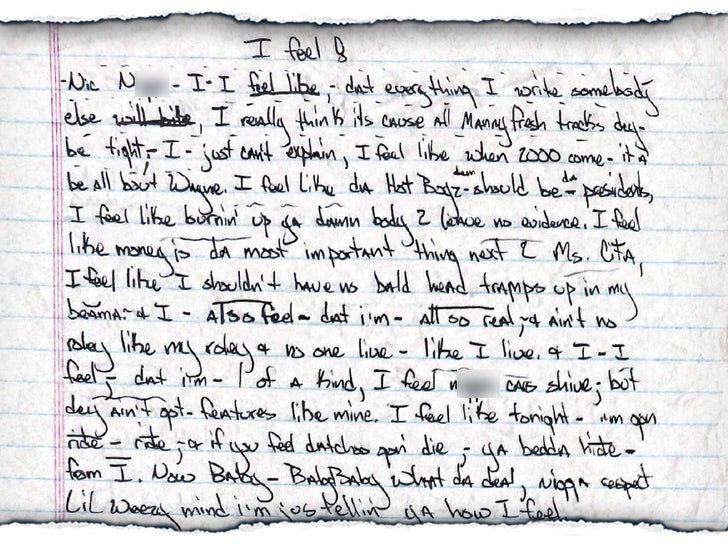 I feel 8
-Nic N - I-I feel like, - dat everything I write somebody
else will bite, I really think its cause all Manny fresh tracks dey-
be tight,- I - just can't explain, I feel like when 2000 come - it'a
be all bout Wayne. I feel Like da Hot Boyz dem - should be - da presidents,
I feel like burnin' up ya damn body 2 leave no evidence. I feel
like money is da most important thing next 2 Ms. Cita,
I feel like I shouldn't have no bald head tramps up in my
beama- & I - Also feel - dat i'm - All so real,-& Ain't no
roley like my roley & no one live - like I live. & I - I
feel,- dat i'm - 1 of a kind, I feel shive; but
dey Ain't got - features like mine. I feel like tonight - i'm gon
ride - ride,-& if you feel datchoo gon' die,- ya bedda hide -
from I. Now Baby - BabyBaby What da deal, nigga respect
Lil Weezy mind i'm jus tellin' ya how I feel.